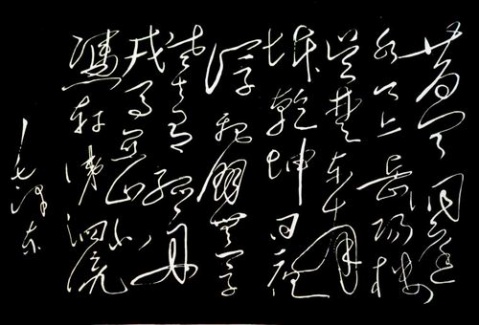 昔闻洞庭
水今上岳阳楼
吴楚东南
坼乾坤日夜
浮亲朋无一字
老去有孤舟
戎马关山北
憑轩涕泗流
毛泽东